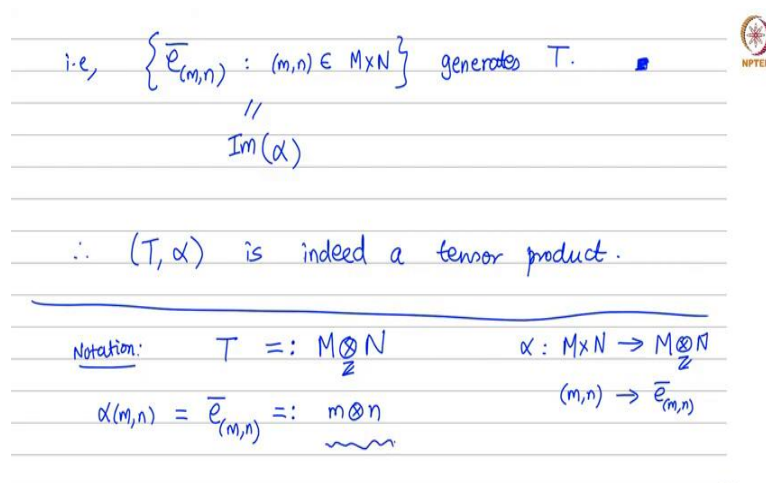 i.e, { e̅_(m,n) : (m,n) ∈ M×N } generates T.
"
Im(α)
∴ (T, α) is indeed a tensor product.
Notation: T =: M⊗_Z N α : M×N → M⊗_Z N
(m,n) → e̅_(m,n)
α(m,n) = e̅_(m,n) =: m⊗n
NPTEL